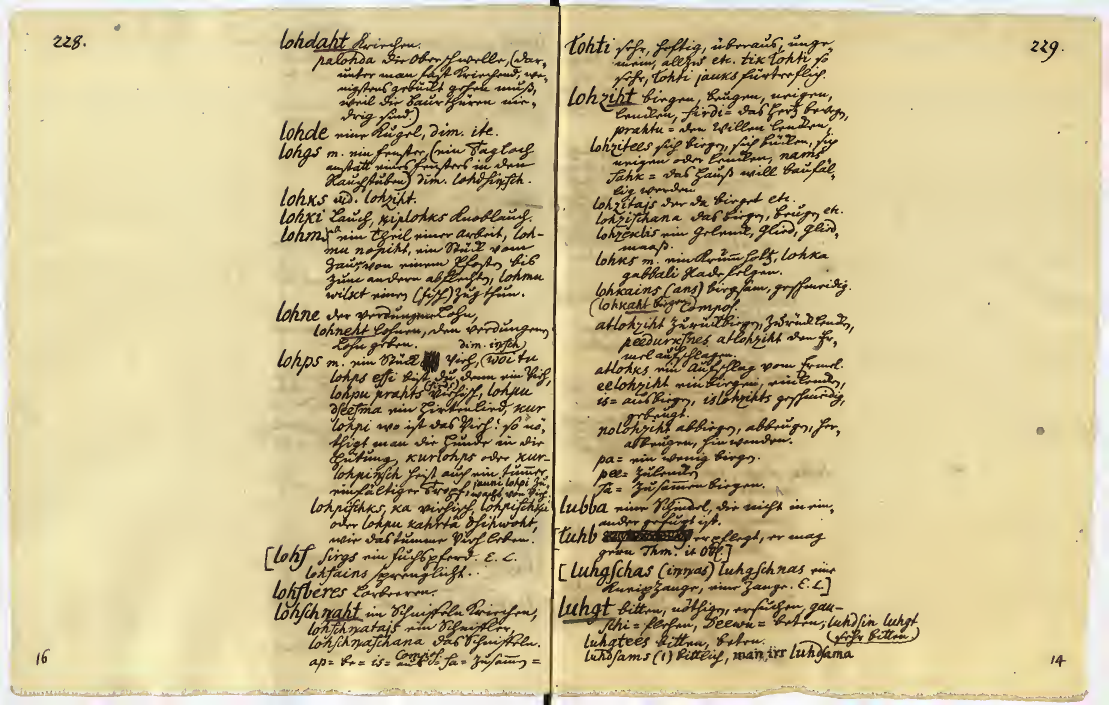 228.
lohdaht kriechen.
palohda die Oberschwelle, (dar,
unter man fast kriechend, we,
nigstens gebückt gehen muß,
weil die Baurthüren nie,
drig sind)
lohde eine Kugel, dim. ite.
lohgs m. ein Fenster, (ein Tagloch
anstatt eines Fensters in den
Rauchstuben) dim. lohdsinsch.
lohks vid. lohziht.
lohki Lauch, kiplohks Knoblauch.
lohms ein Theil einer Arbeit, loh-
mu nopiht, ein Stück vom
Zaun von einem Pfosten bis
zum andern abflechten, lohmu
wilkt einen (fisch) Zug thun.
lohne der verdungene Lohn,
lohneht lohnen, den verdungen
Lohn geben. dim. insch
lohps m. ein Stück Vieh, (woi tu
lohps essi bist du denn ein Vieh,
lohpu prahts viehisch, lohpu
dseesma ein Hirtenlied, kur
lohpi wo ist das Vieh! so nö,
thigt man die Hunde in die
Hütung, kurlohps oder kur-
lohpinsch heist auch ein tummer
einfältiger Tropf
lohpischks, ka viehisch, lohpischki
oder lohpu kahrtâ dsihwoht,
wie das tumme Vieh leben.
[lohs sirgs ein Fuchspferd. E. L.
lohsains sprenglicht.
lohsberes Lorbeeren.
lohschnaht im Schnüffeln kriechen,
lohschnatajs ein Schnüffler,
lohschnaschana das Schnüffeln.
Compos.
ap= be= is= sa= Zusamen=
16
229.
lohti sehr, heftig, überaus, unge,
mein, allzu etc. tik lohti so
sehr, lohti jauks fürtreflich.
lohziht biegen, beugen, neigen,
lenken, sirdi= das Hertz bewegen,
prahtu= den Willen lenken,
lohzitees sich biegen, sich bücken, sich
neigen oder lenken, nams
sahk= das Hauß will baufäl,
lig werden
lohzitajs der da bieget etc.
lohzischana das biegen, beugen etc.
lohzeklis ein Gelenk, Glied, Glied,
maaß.
lohks m. ein Krumholtz, lohka
gabbali Radefelgen.
lohkains (ans) biegsam, geschmeidig.
(lohkaht biegen) Compos.
atlohziht zurückbiegen, zurücklenken,
peedurknes atlohziht den Er,
mel aufschlagen.
atlohks ein Aufschlag vom Ermel.
eelohziht einbiegen, einlenken,
is= ausbiegen, islohzihts geschmeidig,
gebeugt.
nolohziht abbiegen, abbeugen, her,
abbeugen, hinwenden.
pa= ein wenig biegen.
pee= zulenken
sa= zusammen biegen.
lubba eine Schindel, die nicht in ein,
ander gefügt ist.
[luhb er pflegt, er mag
gern Thm. it Obl.]
[luhgschas (innas) luhgschnas eine
Kneipzange, eine Zange. E. L.]
luhgt bitten, nöthigen, ersuchen, gau-
schi= flehen, Deewu= beten, luhdsin luhgt
(sehr bitten)
luhgtees bitten, beten.
luhdsams (1) bittlich, man irs luhdsama
14